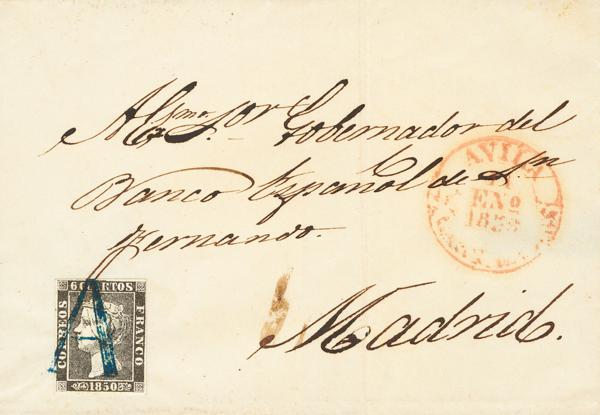 Illmo. Sor. Gobernador del
Banco Español de Sn
Fernando.
Madrid.
AVILA
ENO
6 CUARTOS
CORREOS
FRANCO
1850
A